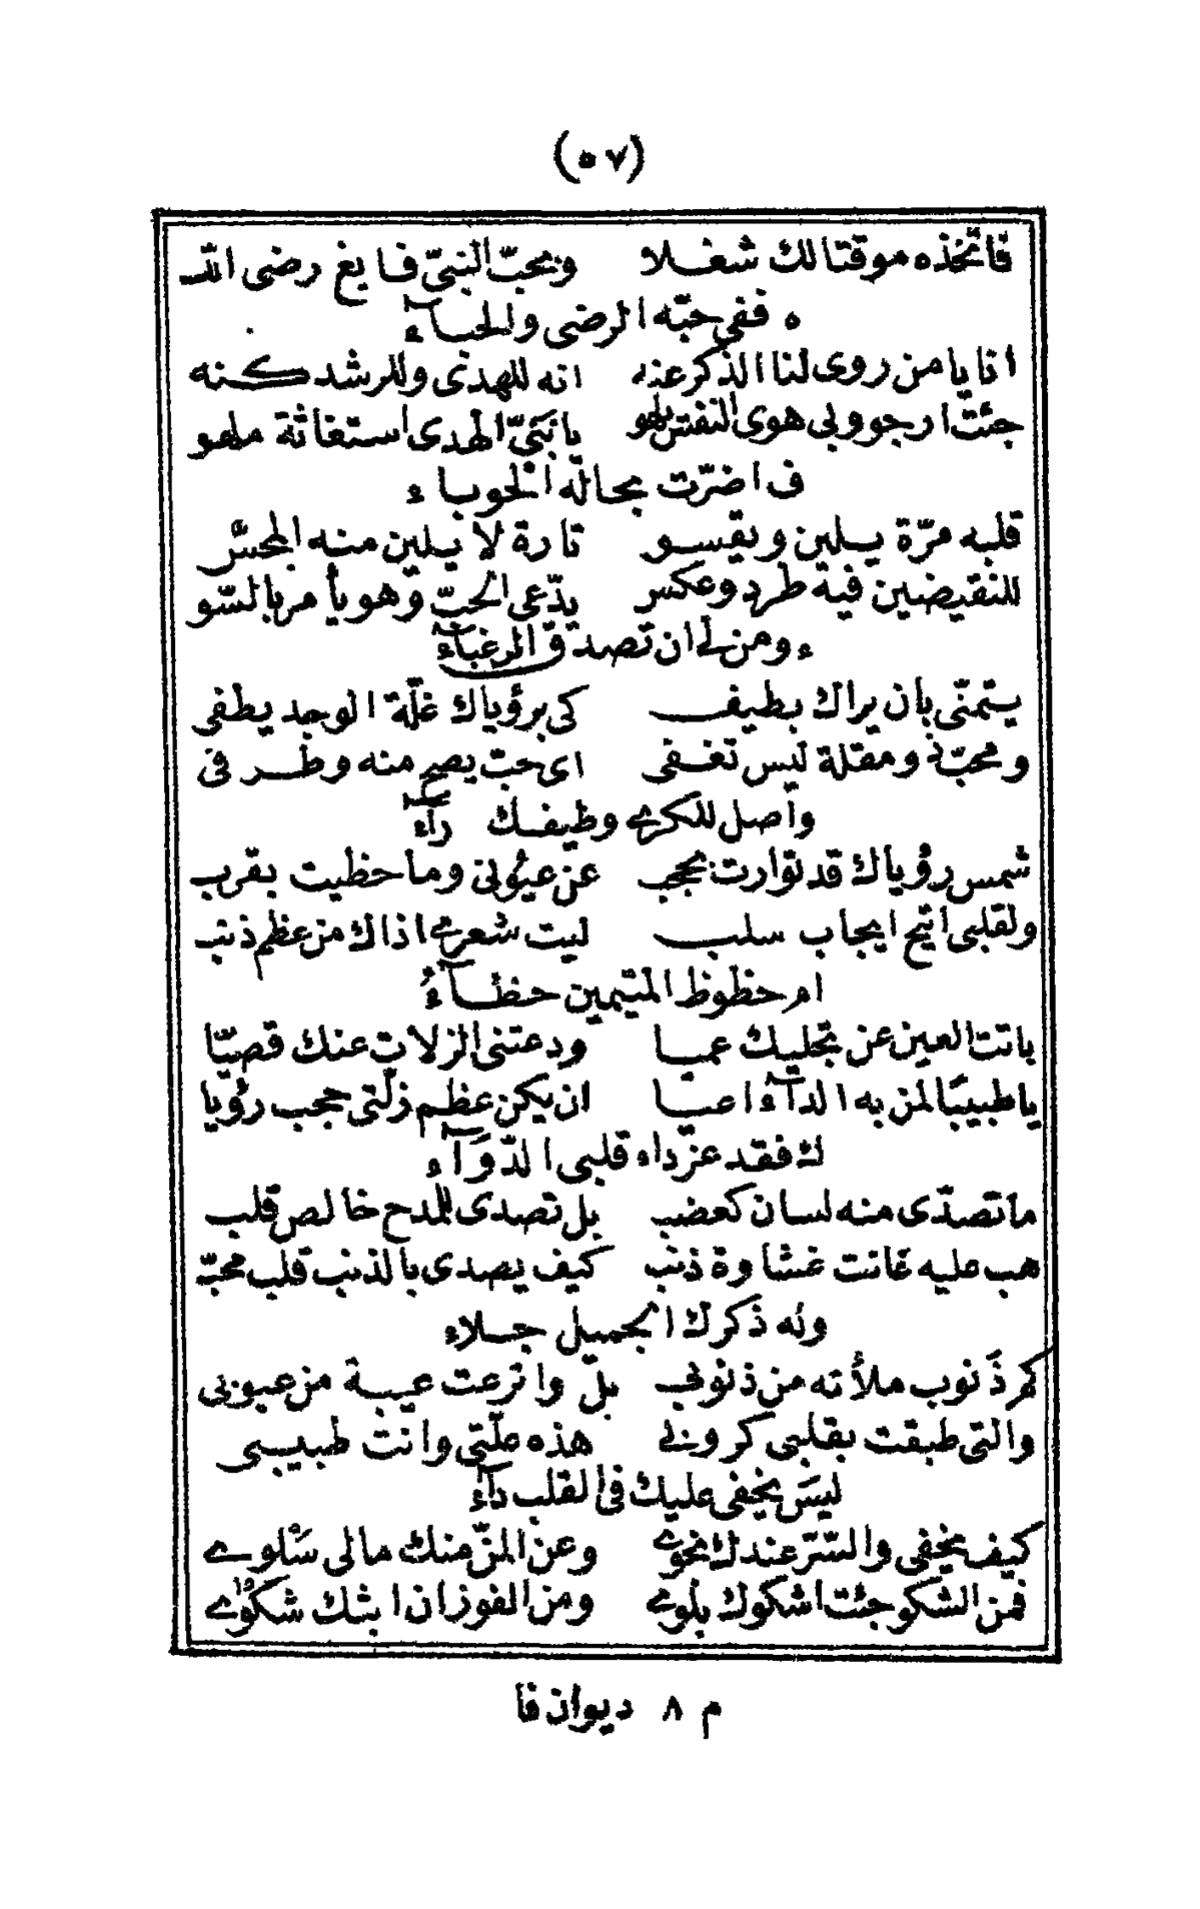 (٥٧)
فاتخذه موقتا لك شغلا وبحبّ النبىّ فابغ رضى الله
ه ففى حبّه الرضى والحبآء
انا يا من روى لنا الذكر عنه انه للهدى وللرشد كنه
جئت ارجو وبى هوى النفس يلهو يا نبىّ الهدى استغاثة ملهو
ف اضرّت بحاله الحوباء
قلبه مرّة يلين ويقسو تارة لا يلين منه المجسّ
للنقيضين فيه طرد وعكس يدّعى الحبّ وهو يأمر بالسّو
ء ومن لى ان تصدق الرغبآء
يتمنّى بان يراك بطيف كى برؤياك غلّة الوجد يطفى
ومحبّ ومقلة ليس تغفى اى حبّ يصح منه وطرفى
واصل للكرى وطيفك رآء
شمس رؤياك قد توارت بحجب عن عيونى وما حظيت بقرب
ولقلبى اتيح ايجاب سلب ليت شعرى اذاك من عظم ذنب
ام حظوظ المتيمين حظآء
باتت العين عن تجليك عميا ودعتنى الزلات عنك قصيّا
يا طبيبا لمن به الدآء اعيا ان يكن عظم زلّتى حجب رؤيا
ك فقد عزّ داء قلبى الدّوآء
ما تصدّى منه لسان كعضب بل تصدى للمدح خالص قلب
هب عليه غانت غشاوة ذنب كيف يصدى بالذنب قلب محبّ
وله ذكرك الجميل جلاء
كم ذنوب ملأته من ذنوبى بل واترعت عيبة من عيوبى
والتى طبقت بقلبى كروبى هذه علّتى وانت طبيبى
ليس يخفى عليك فى القلب دآء
كيف يخفى والسّرّ عندك نجوى وعن المنّ منك مالى سلوى
فمن الشكو جئت اشكوك بلوى ومن الفوز ان ابثك شكوى
م ٨ ديوان فا